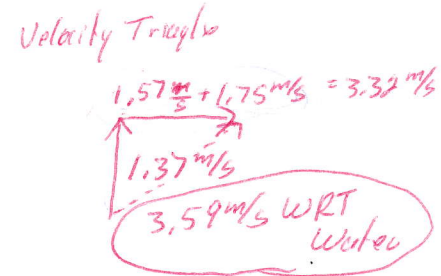 Velocity Triangle
1,57 m/s + 1,75 m/s = 3.32 m/s
1.37 m/s
3,59 m/s WRT
Water